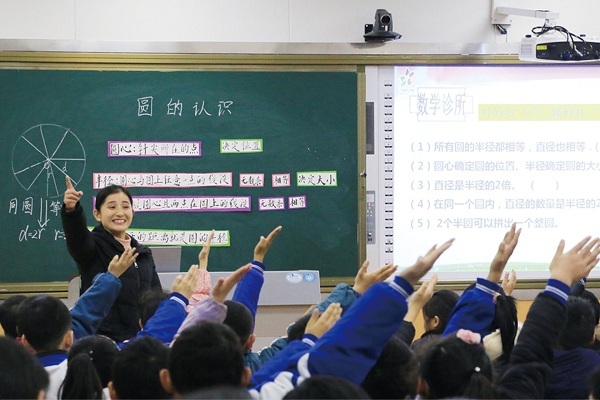 圆的认识
圆心：针尖所在的点
决定位置
半径：圆心与圆上任意一点的线段
无数条
相等
决定大小
圆心且两点在圆上的线段
无数条
相等
用圆
d=2r
的距离就是圆的半径
数学诊所
（1）所有圆的半径都相等，直径也相等．（
（2）圆心确定圆的位置，半径确定圆的大小
（3）直径是半径的2倍．（ ）
（4）在同一个圆内，直径的数量是半径的2
（5）2个半圆可以拼出一个整圆．